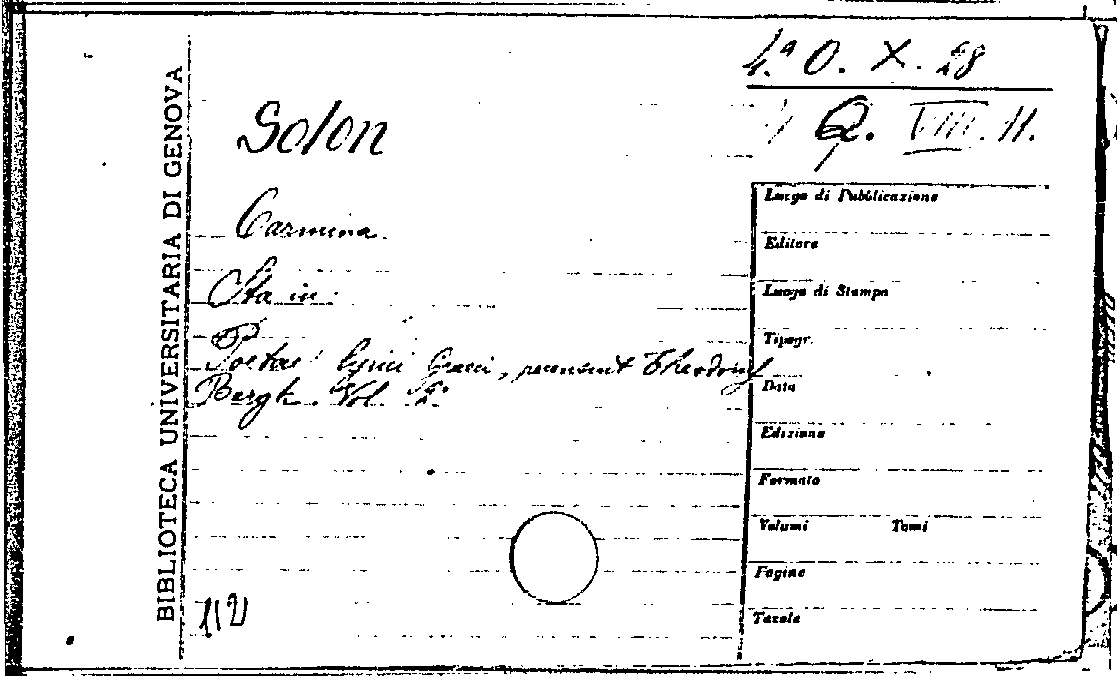 BIBLIOTECA UNIVERSITARIA DI GENOVA
4.ª O. X. 28
Q. VIII. 11.
Solon
Carmina
Sta in:
Poetae lyrici Graeci, recensuit Theodorus
Bergk. Vol. 2.
Luogo di Pubblicazione
Editore
Luogo di Stampa
Tipogr.
Data
Edizione
Formato
Volumi Tomi
Pagine
Tavole